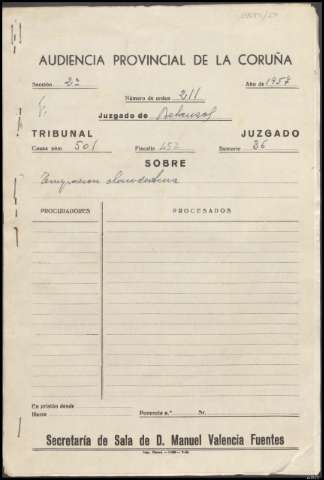 AUDIENCIA PROVINCIAL DE LA CORUÑA
Sección 2ª Año de 1957
Número de orden 211
Juzgado de Betanzos
TRIBUNAL JUZGADO
Causa núm 501 Fiscalía 452 Sumario 26
SOBRE
Emigración clandestina
PROCURADORES PROCESADOS
En prisión desde
libres Ponencia n.º Sr.
Secretaría de Sala de D. Manuel Valencia Fuentes